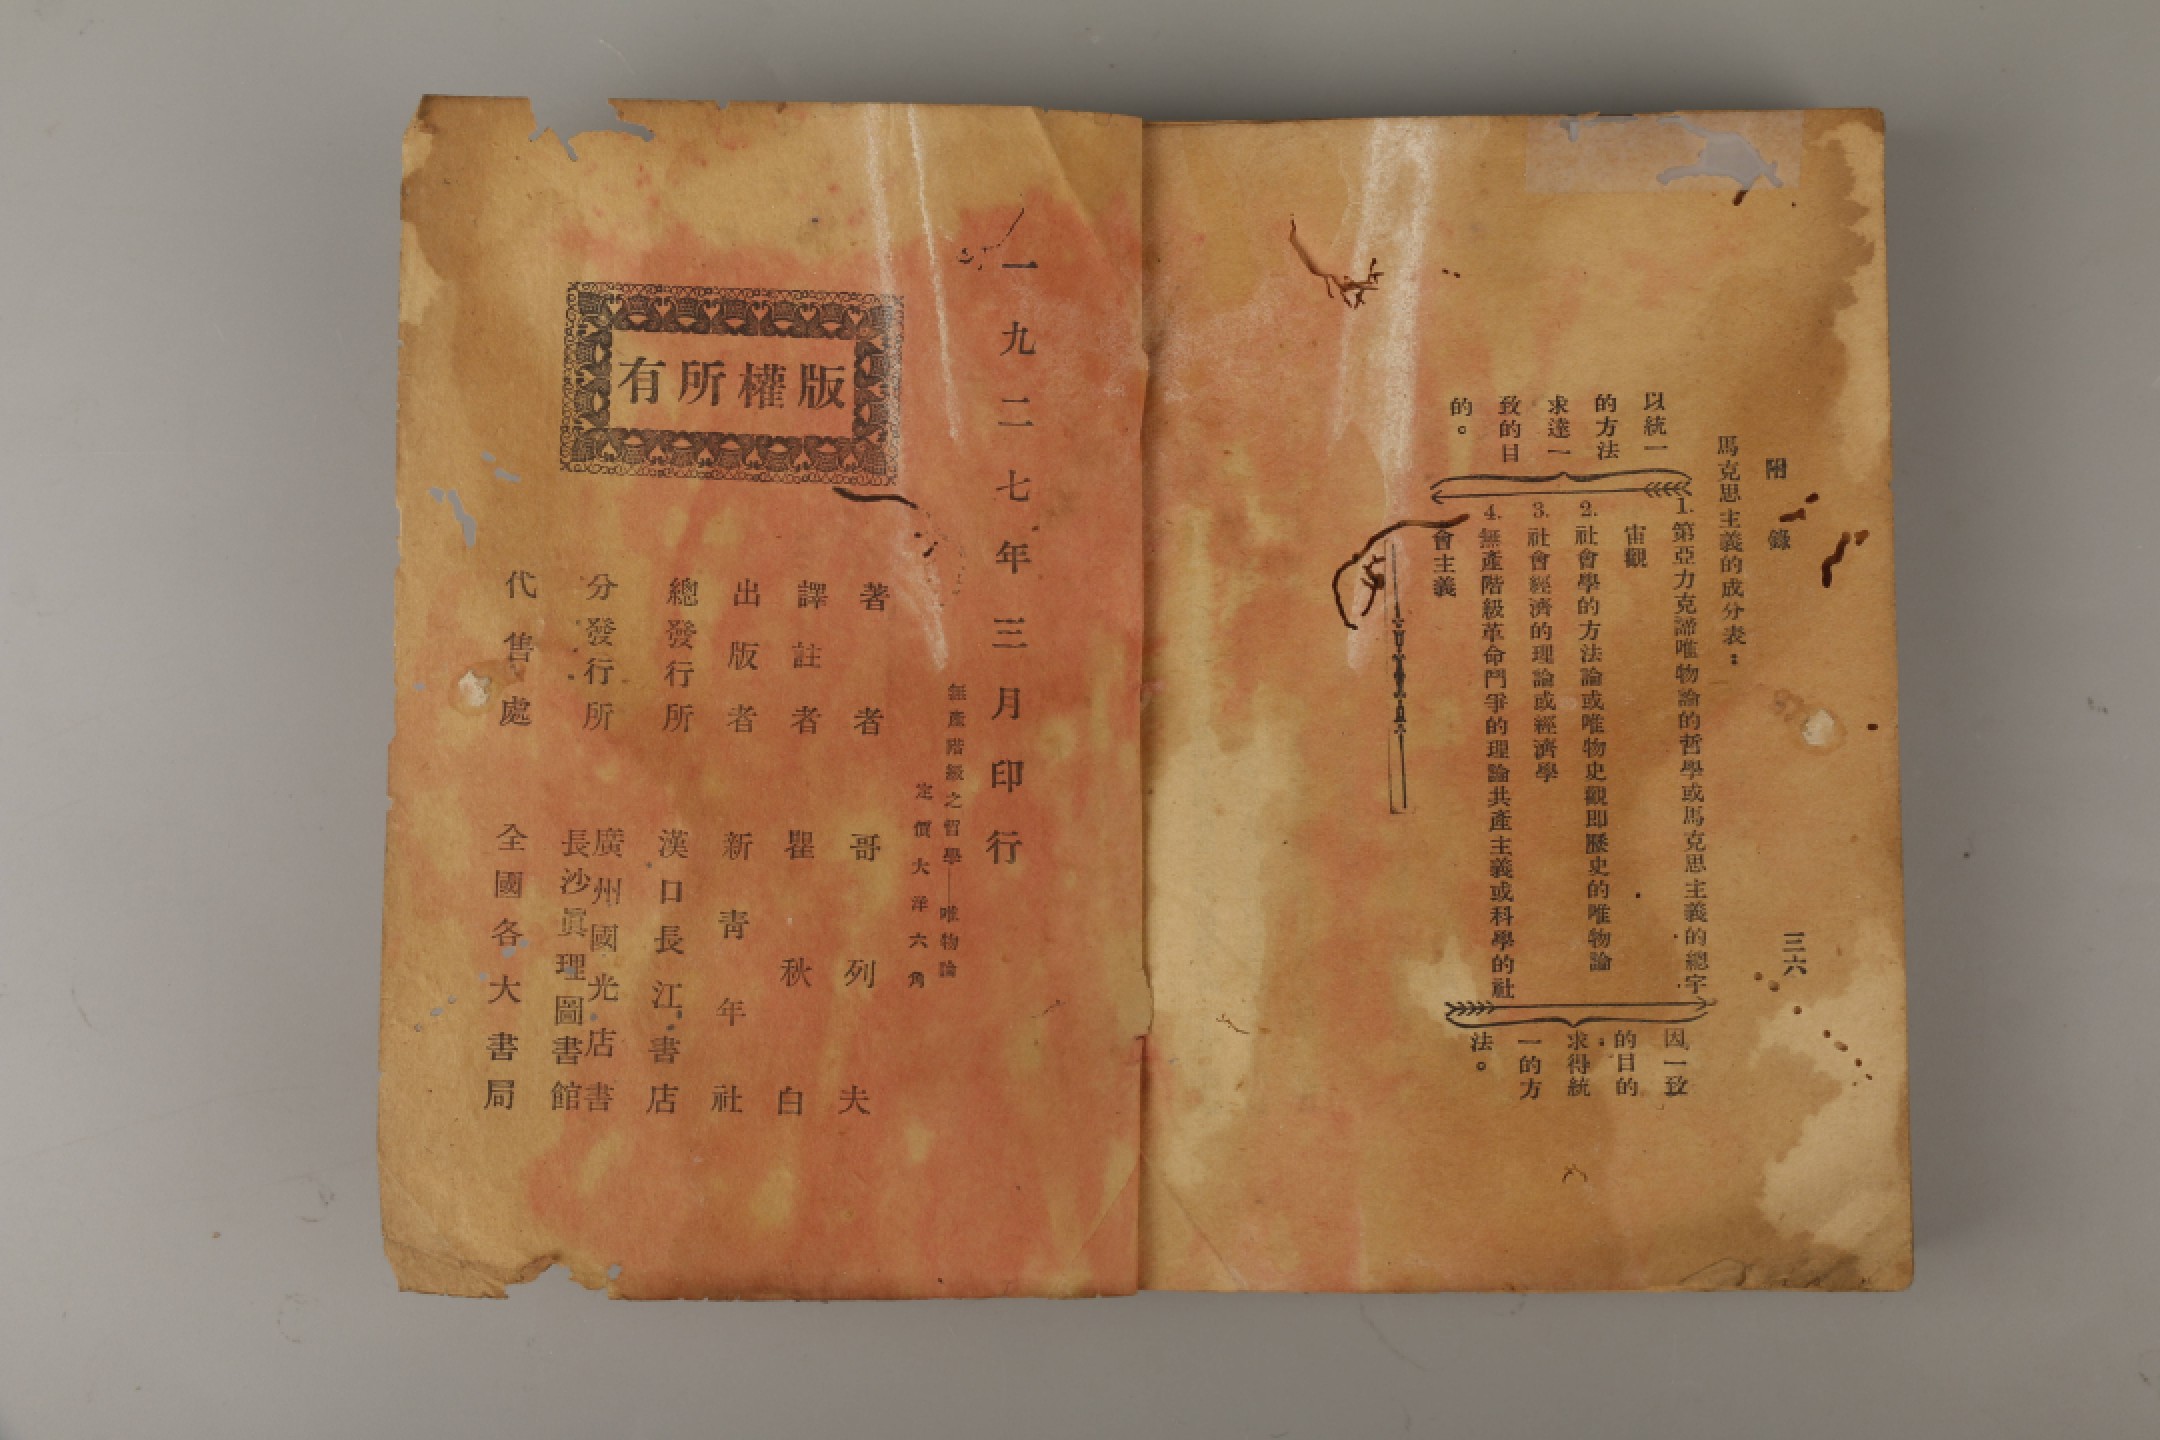 附錄
三六
馬克思主義的成分表：
以統一
的方法
求達一
致的目
的。
1.第亞力克諦唯物論的哲學或馬克思主義的總宇
宙觀
2.社會學的方法論或唯物史觀即歷史的唯物論
3.社會經濟的理論或經濟學
4.無產階級革命鬥爭的理論共產主義或科學的社
會主義
因一致
的目的
求得統
一的方
法。
一九二七年三月印行
無產階級之哲學——唯物論
定價大洋六角
版權所有
著者 哥列夫
譯註者 瞿秋白
出版者 新青年社
總發行所 漢口長江書店
分發行所 廣州國光店書
長沙眞理圖書館
代售處 全國各大書局